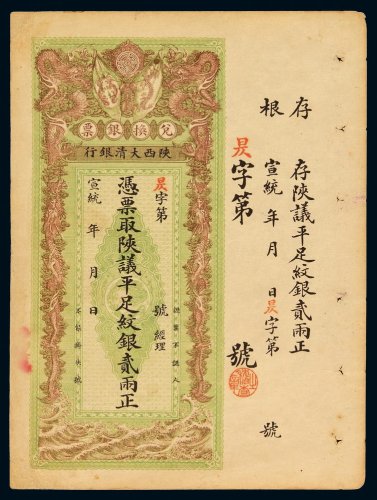 票銀換兌
行銀清大西陝
昃字第 號 經理
憑票取陝議平足紋銀貳兩正
宣統 年 月 日
認票不認人
存根
存陝議平足紋銀貳兩正
宣統 年 月 日 昃字第 號
昃字第 號